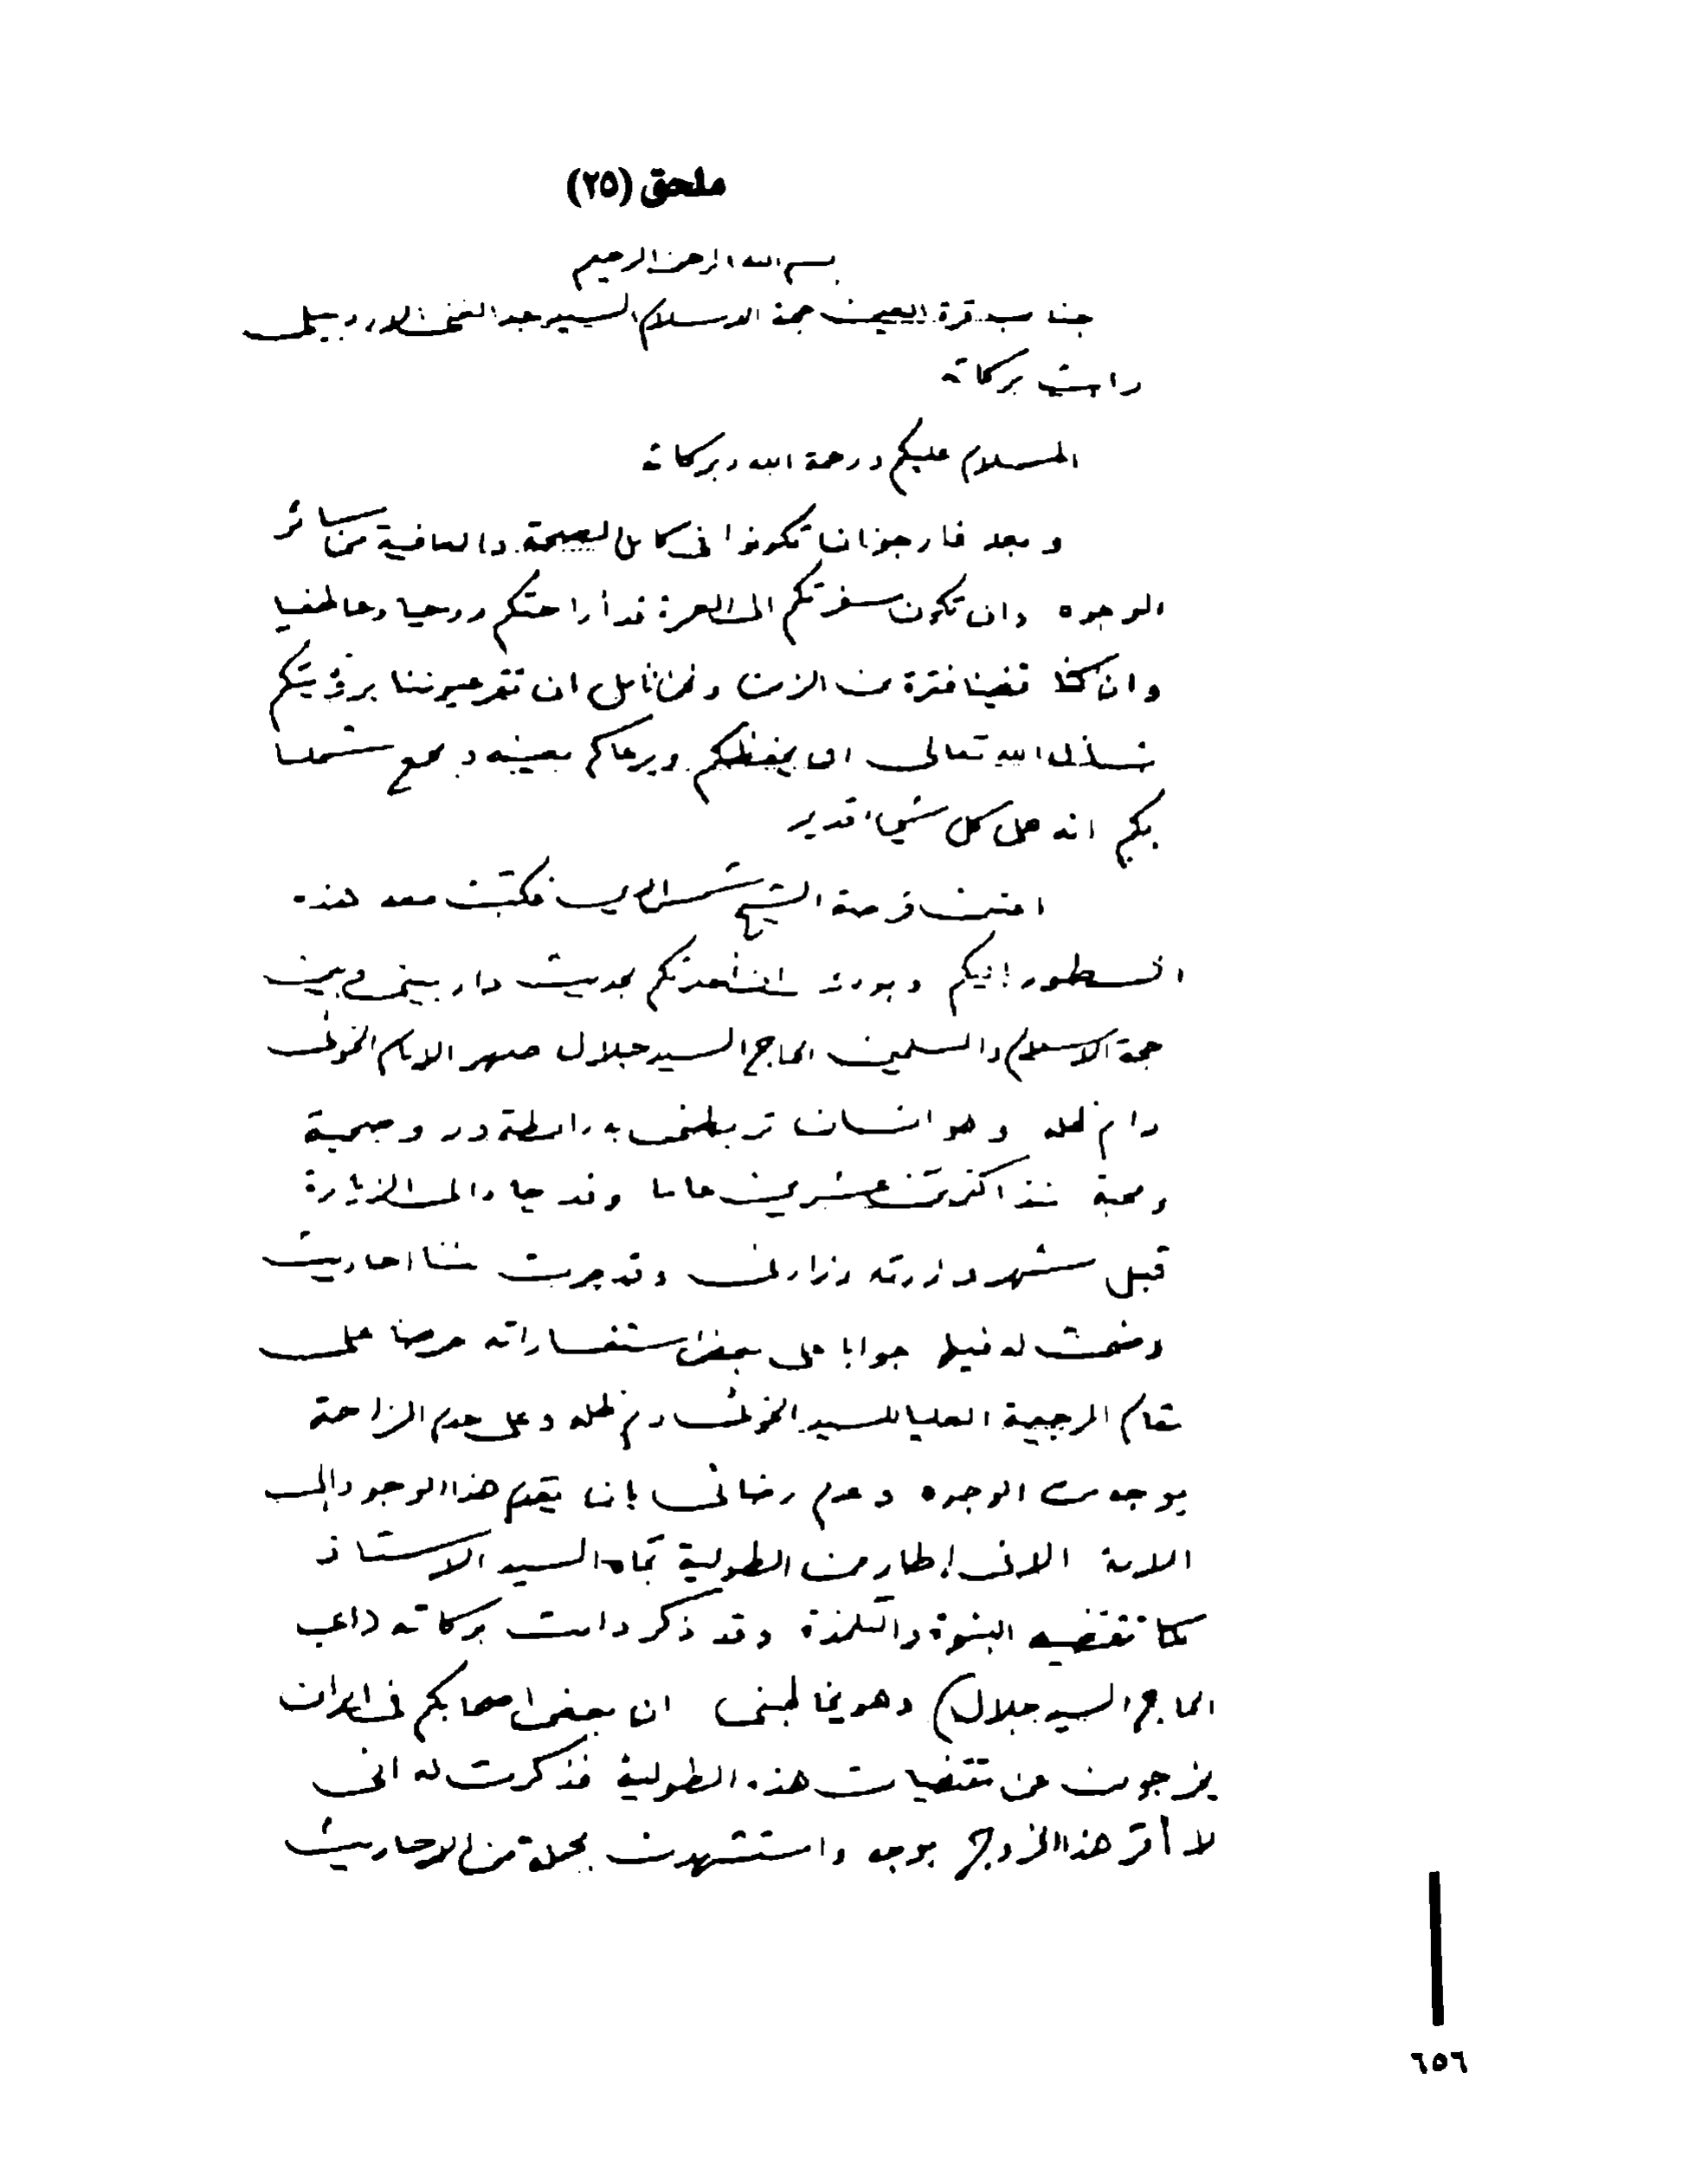 ملحق (٢٥)
بسم الله الرحمن الرحيم
جناب قرة العين حجة الاسلام السيد عبد الغني الاردبيلي
دامت بركاته
السلام عليكم ورحمة الله وبركاته
وبعد فارجو ان تكونوا في كامل الصحة والعافية من سائر
الوجوه وان تكون سفرتكم الى العمرة قد أراحتكم روحيا وعاطفيا
وان كنا فترة من الزمن ونحن نأمل ان تقر عيوننا برؤيتكم
نسأل الله تعالى ان يحفظكم ويرعاكم بعينه ويجمع شملنا
بكم انه على كل شيء قدير
اغتنمت فرصة الشيخ فكتبت معه هذه
السطور إليكم وبودي ان أحدثكم بحديث دار بيني وبين
حجة الاسلام والمسلمين الحاج السيد جلال صهر الامام الخوئي
دام ظله وهو انسان تربطني به رابطة ود وصحبة
ومحبة منذ اكثر من عشرين عاما وقد جاء الى الزيارة
قبل شهر وزرته وزارني وقد جرت بيننا احاديث
وضحت له فيها جوابا على بعض استفساراته حرصا على
مقام المرجعية العليا للسيد الخوئي دام ظله وعلى عدم المزاحمة
بوجه من الوجوه وعدم رضائي بان يقدم هذا الوجود إلى
الامة الا في إطار من الطولية تجاه السيد الاستاذ
كما تقتضيه البنوة والتلمذة وقد ذكر دامت بركاته (اعني
الحاج السيد جلال) وهو يخاطبني ان بعض اصحابكم في ايران
يخرجون عن مقتضيات هذه الطولية فذكرت له اني
لا أقر هذا الخروج بوجه واستشهدت بجملة من الاحاديث
٦٥٦